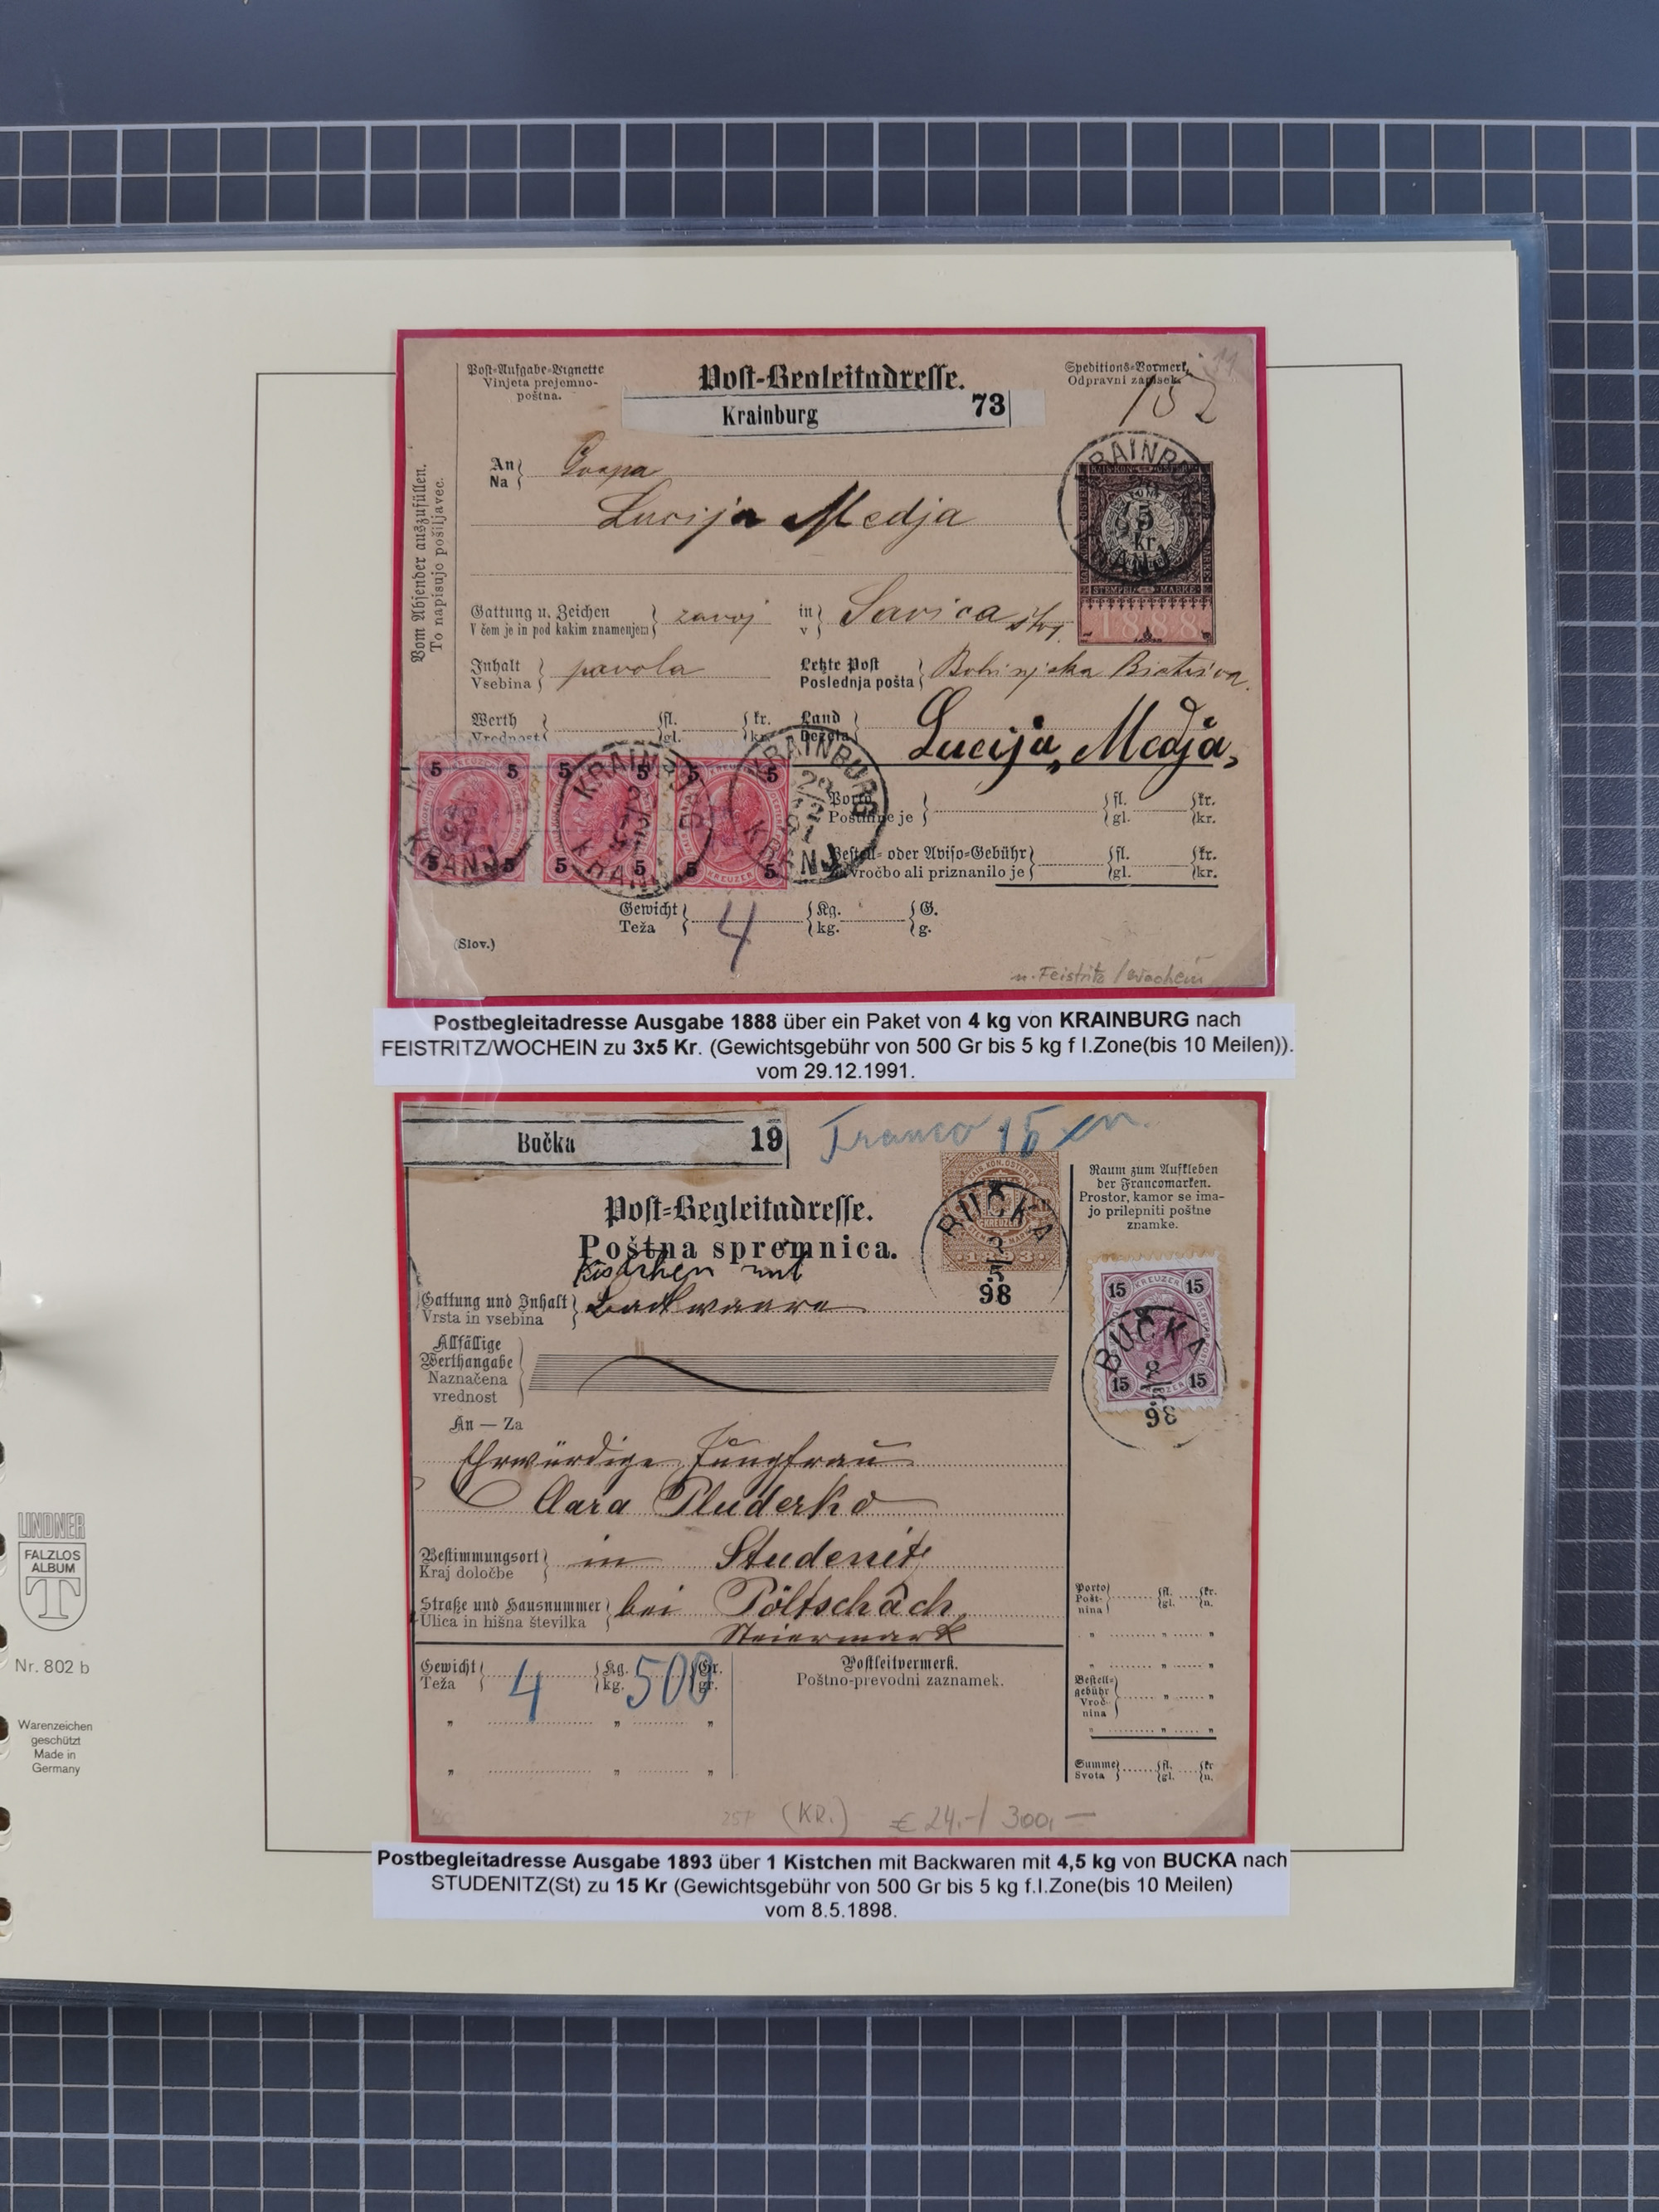 Post-Aufgabe-Vignette
Vinjeta prejemno-
poštna.
Post-Begleitadresse.
Speditions-Vormerk
Odpravni zapisek.
Krainburg 73
152
Vom Absender auszufüllen.
To napisujo pošiljavec.
An
Na
Gospa
Lucija Medja
KRAINBURG
KRANJ
5
kr
STEMPEL MARKE
1888
Gattung u. Zeichen
V čem je in pod kakim znamenjem
zavoj
in
v
Savica
Inhalt
Vsebina
pavola
Letzte Post
Poslednja pošta
Bohinjska Bistrica.
Werth fl. kr.
Vrednost gl. kr.
Land
Dežela
Lucija Medja,
5 5 5 5 5 5
KREUZER
KRAINBURG
29/12 91
KRANJ
Porto fl. kr.
Poštnine je gl. kr.
Bestell- oder Aviso-Gebühr fl. kr.
Za vročbo ali priznanilo je gl. kr.
Gewicht Kg. G.
Teža 4 kg. g.
(Slov.)
n. Feistritz / Wochein
Postbegleitadresse Ausgabe 1888 über ein Paket von 4 kg von KRAINBURG nach
FEISTRITZ/WOCHEIN zu 3x5 Kr. (Gewichtsgebühr von 500 Gr bis 5 kg f I.Zone(bis 10 Meilen)).
vom 29.12.1991.
Bučka 19
Franco 15 xn.
Post-Begleitadresse.
Poštna spremnica.
KREUZER
1893
BUČKA
8/5
98
Raum zum Aufkleben
der Francomarken.
Prostor, kamor se ima-
jo prilepniti poštne
znamke.
Kistchen mit
Gattung und Inhalt
Vrsta in vsebina
Backwaare
15 KREUZER 15
BUČKA
8/5
98
15 KREUZER 15
Allfällige
Werthangabe
Naznačena
vrednost
An — Za
Ehrwürdige Jungfrau
Clara Pluderko
Bestimmungsort
Kraj določbe
in Studenitz
Straße und Hausnummer
Ulica in hišna številka
bei Pöltschach
Steiermark
Gewicht Kg. Gr.
Teža 4 kg. 500 gr.
Postleitvermerk.
Poštno-prevodni zaznamek.
Porto fl. kr.
Pošt-
nina gl. n.
Bestell-
gebühr
Vroč-
nina
Summe fl. kr
Svota gl. n.
257 (KR.) € 24,-/ 300,—
Postbegleitadresse Ausgabe 1893 über 1 Kistchen mit Backwaren mit 4,5 kg von BUCKA nach
STUDENITZ(St) zu 15 Kr (Gewichtsgebühr von 500 Gr bis 5 kg f.I.Zone(bis 10 Meilen)
vom 8.5.1898.
LINDNER
FALZLOS
ALBUM
T
Nr. 802 b
Warenzeichen
geschützt
Made in
Germany